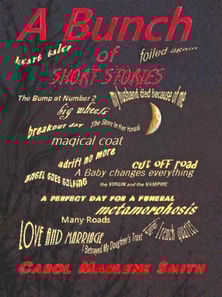 A Bunch
of
SHORT STORIES
heart tales
foiled again
The Bump at Number 2
my husband died because of me
big wheels
The Story in Her Head
breakout day
magical coat
adrift no more
cut off road
ANGEL GOES GOLFING
A Baby changes everything
the VIRGIN and the VAMPIRE
A PERFECT DAY FOR A FUNERAL
metamorphosis
Many Roads
LOVE AND MARRIAGE
I Betrayed My Daughter's Trust
french quarter
CAROL MARLENE SMITH